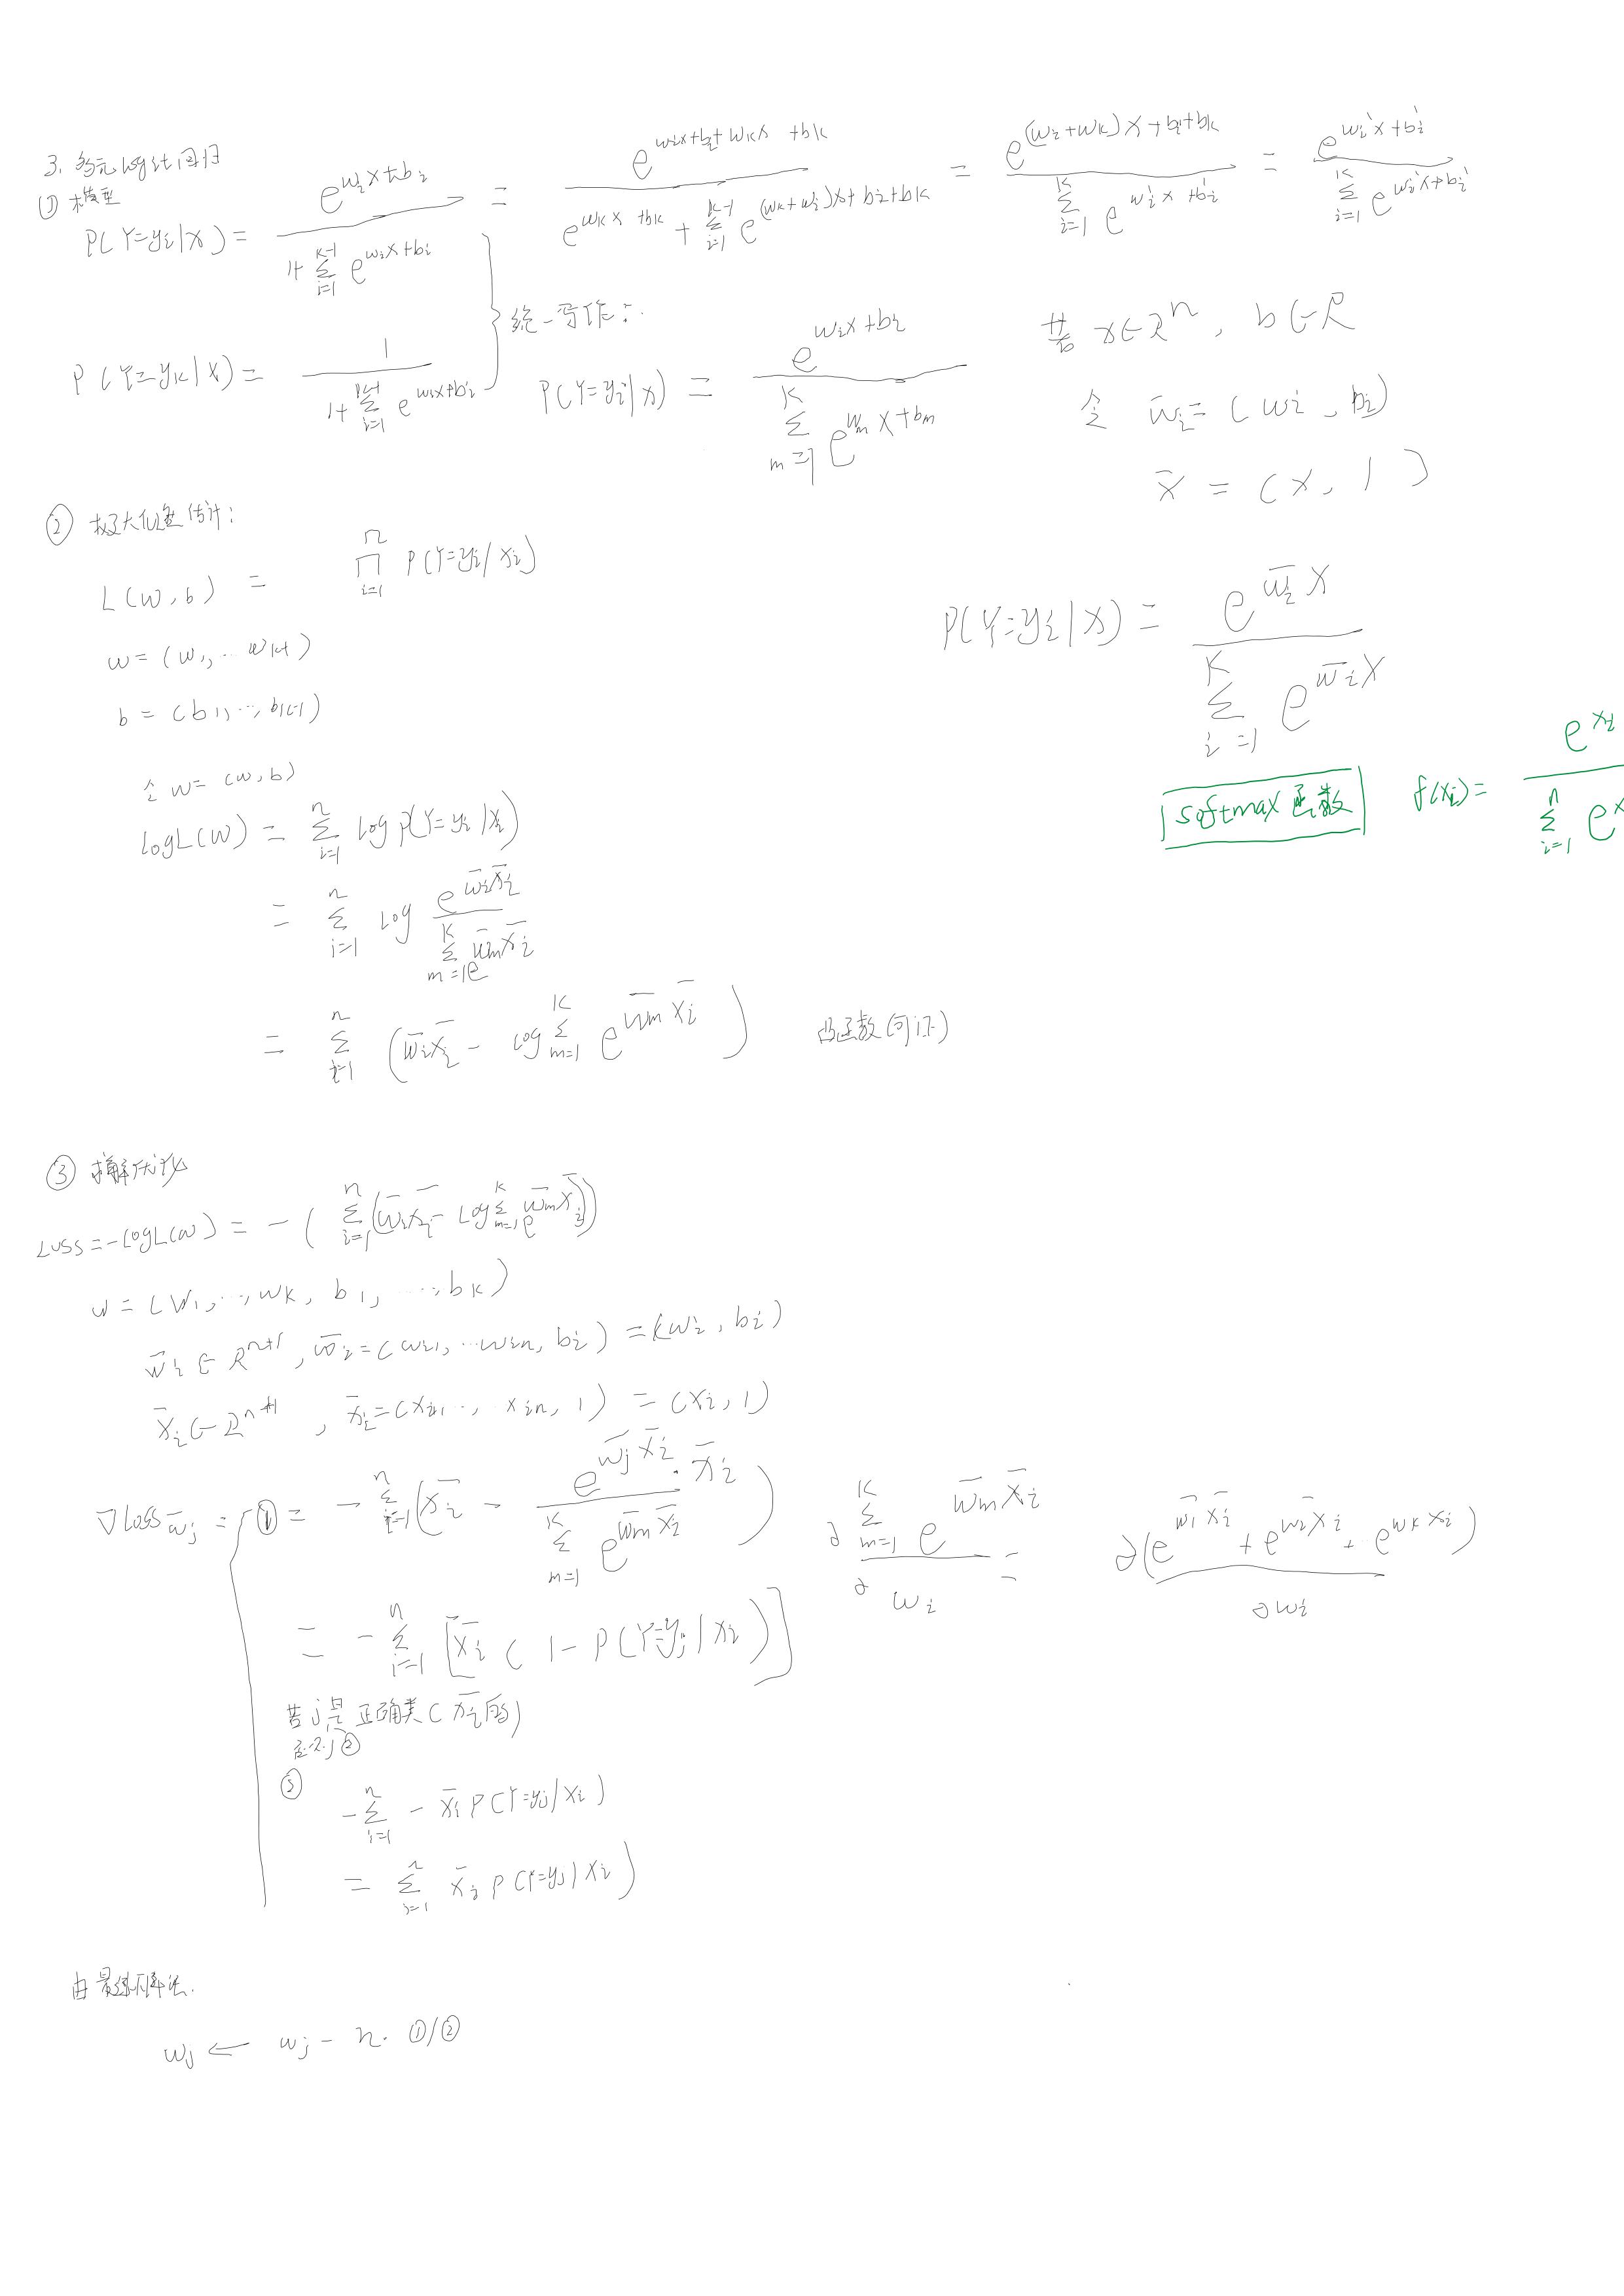 3. 多元logit回归
① 模型
P(Y=yi|x) = e^(wix+bi) / (1+ Σ_{i=1}^{K-1} e^(wix+bi)) = e^(wix+bi+wkx+bk) / (e^(wkx+bk) + Σ_{i=1}^{K-1} e^((wk+wi)x+bi+bk)) = e^((wi+wk)x+bi+bk) / Σ_{i=1}^{K} e^(wi'x+bi') = e^(wi'x+bi') / Σ_{i=1}^{K} e^(wi'x+bi')
P(Y=yk|x) = 1 / (1+ Σ_{i=1}^{K-1} e^(wix+bi))
统一写作:
P(Y=yi|x) = e^(wix+bi) / Σ_{m=1}^{K} e^(wmx+bm)
若 x∈R^n, b∈R
令 w̄i = (wi, bi)
x̄ = (x, 1)
P(Y=yi|x) = e^(w̄i x) / Σ_{i=1}^{K} e^(w̄i x)
softmax 函数 f(xi) = e^xi / Σ_{i=1}^{n} e^x
② 极大似然估计:
L(w,b) = Π_{i=1}^{n} P(Y=yi|xi)
w = (w1, ... wk-1)
b = (b1, ..., bk-1)
令 w = (w,b)
logL(w) = Σ_{i=1}^{n} log P(Y=yi|xi)
= Σ_{i=1}^{n} log e^(w̄i x̄i) / Σ_{m=1}^{K} e^(w̄m x̄i)
= Σ_{i=1}^{n} (w̄i x̄i - log Σ_{m=1}^{K} e^(w̄m x̄i)) 凸函数(可证)
③ 求解优化
Loss = -logL(w) = -( Σ_{i=1}^{n} (w̄i x̄i - Log Σ_{m=1}^{K} e^(w̄m x̄i)))
w = (w1, ..., wk, b1, ..., bk)
w̄i ∈ R^(n+1), w̄i = (wi1, ... win, bi) = (wi, bi)
x̄i ∈ R^(n+1), x̄i = (xi1, ..., xin, 1) = (xi, 1)
∇Loss_w̄j = { ① = - Σ_{i=1}^{n} (x̄i - e^(w̄j x̄i) · x̄i / Σ_{m=1}^{K} e^(w̄m x̄i))
∂ Σ_{m=1}^{K} e^(w̄m x̄i) / ∂wi = ∂(e^(w̄1 x̄i) + e^(w2 x̄i) + e^(wk xi)) / ∂wi
= - Σ_{i=1}^{n} [x̄i (1 - P(Y=yj|xi)]
若j是正确类(x̄i的)
否则②
②
- Σ_{i=1}^{n} - x̄i P(Y=yj|xi)
= Σ_{i=1}^{n} x̄i P(Y=yj|xi)
由最速下降法.
wj ← wj - η· ①/②